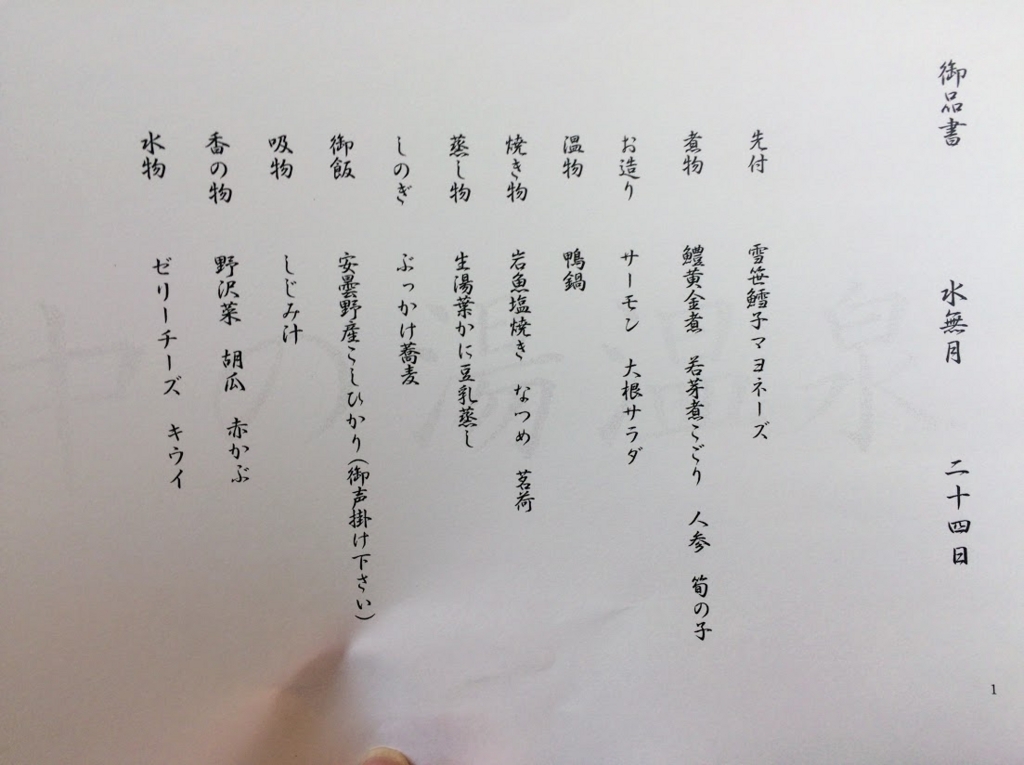 御品書　水無月　二十四日
先付　雪笹鱈子マヨネーズ
煮物　鱧黄金煮　若芽煮こごり　人参　筍の子
お造り　サーモン　大根サラダ
温物　鴨鍋
焼き物　岩魚塩焼き　なつめ　茗荷
蒸し物　生湯葉かに豆乳蒸し
しのぎ　ぶっかけ蕎麦
御飯　安曇野産こしひかり（御声掛け下さい）
吸物　しじみ汁
香の物　野沢菜　胡瓜　赤かぶ
水物　ゼリーチーズ　キウイ
1
中の湯温泉